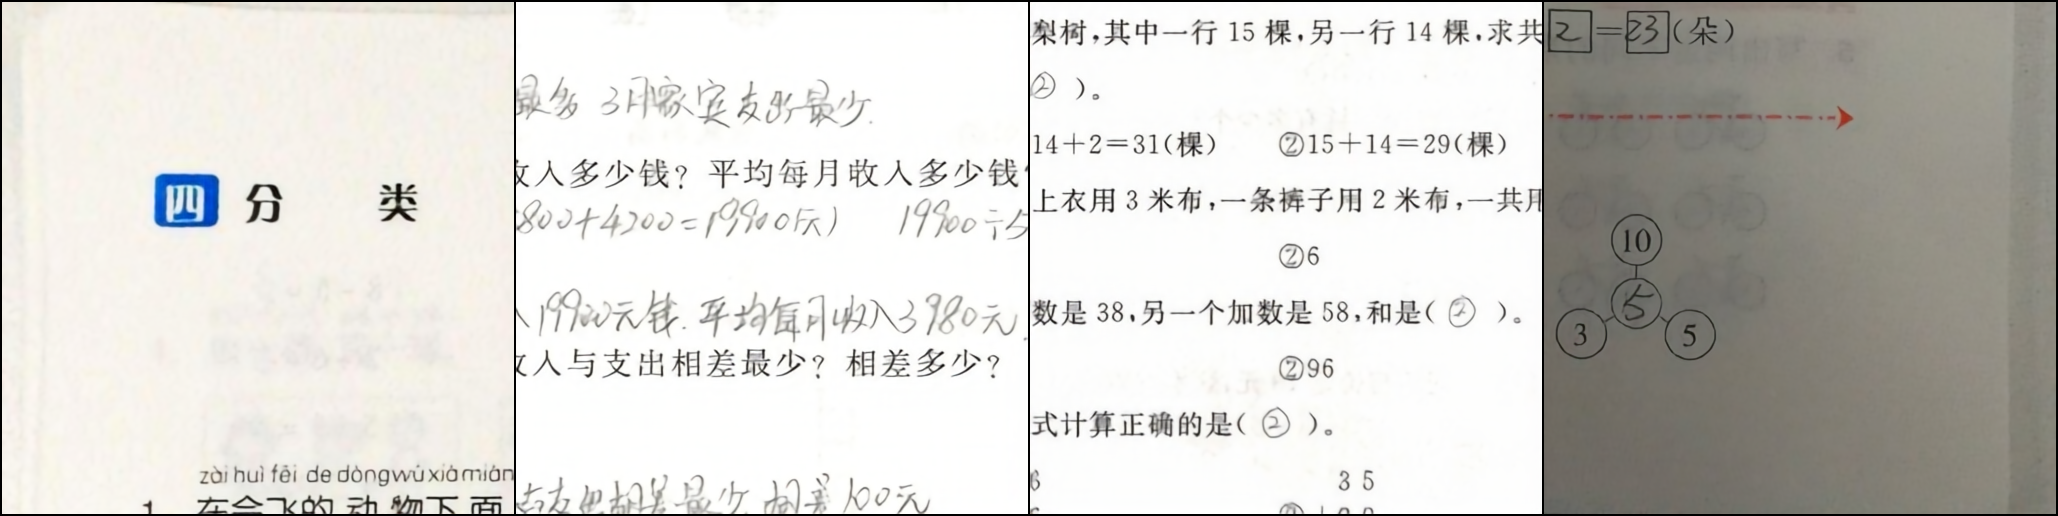 四 分 类
zài huì fēi de dòng wù xià miàn
1. 在会飞的动物下面
最多 3月家庭支出最少.
收入多少钱？平均每月收入多少钱
800+4200=19900(元) 19900÷5
入19900元钱.平均每月收入3980元.
收入与支出相差最少？相差多少？
与支出相差最少 相差100元
梨树，其中一行 15 棵，另一行 14 棵，求共
② )。
14+2=31(棵) ②15+14=29(棵)
上衣用 3 米布，一条裤子用 2 米布，一共用
②6
数是 38，另一个加数是 58，和是( ② )。
②96
式计算正确的是( ② )。
6 3 5
2=23(朵)
10
5
3 5